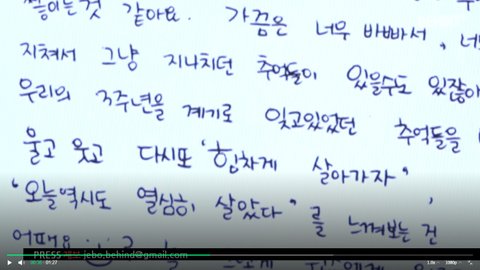 같아요. 가끔은 너무 바빠서,
지쳐서 그냥 지나치던 추억들이 있을수도 있잖아
우리의 3주년을 계기로 잊고있었던 추억들을
울고 웃고 다시또 '힘차게 살아가자',
"오늘역시도 열심히 살았다"를 느껴보는 건
어때요
PRESS jebo.behind@gmail.com
01:27